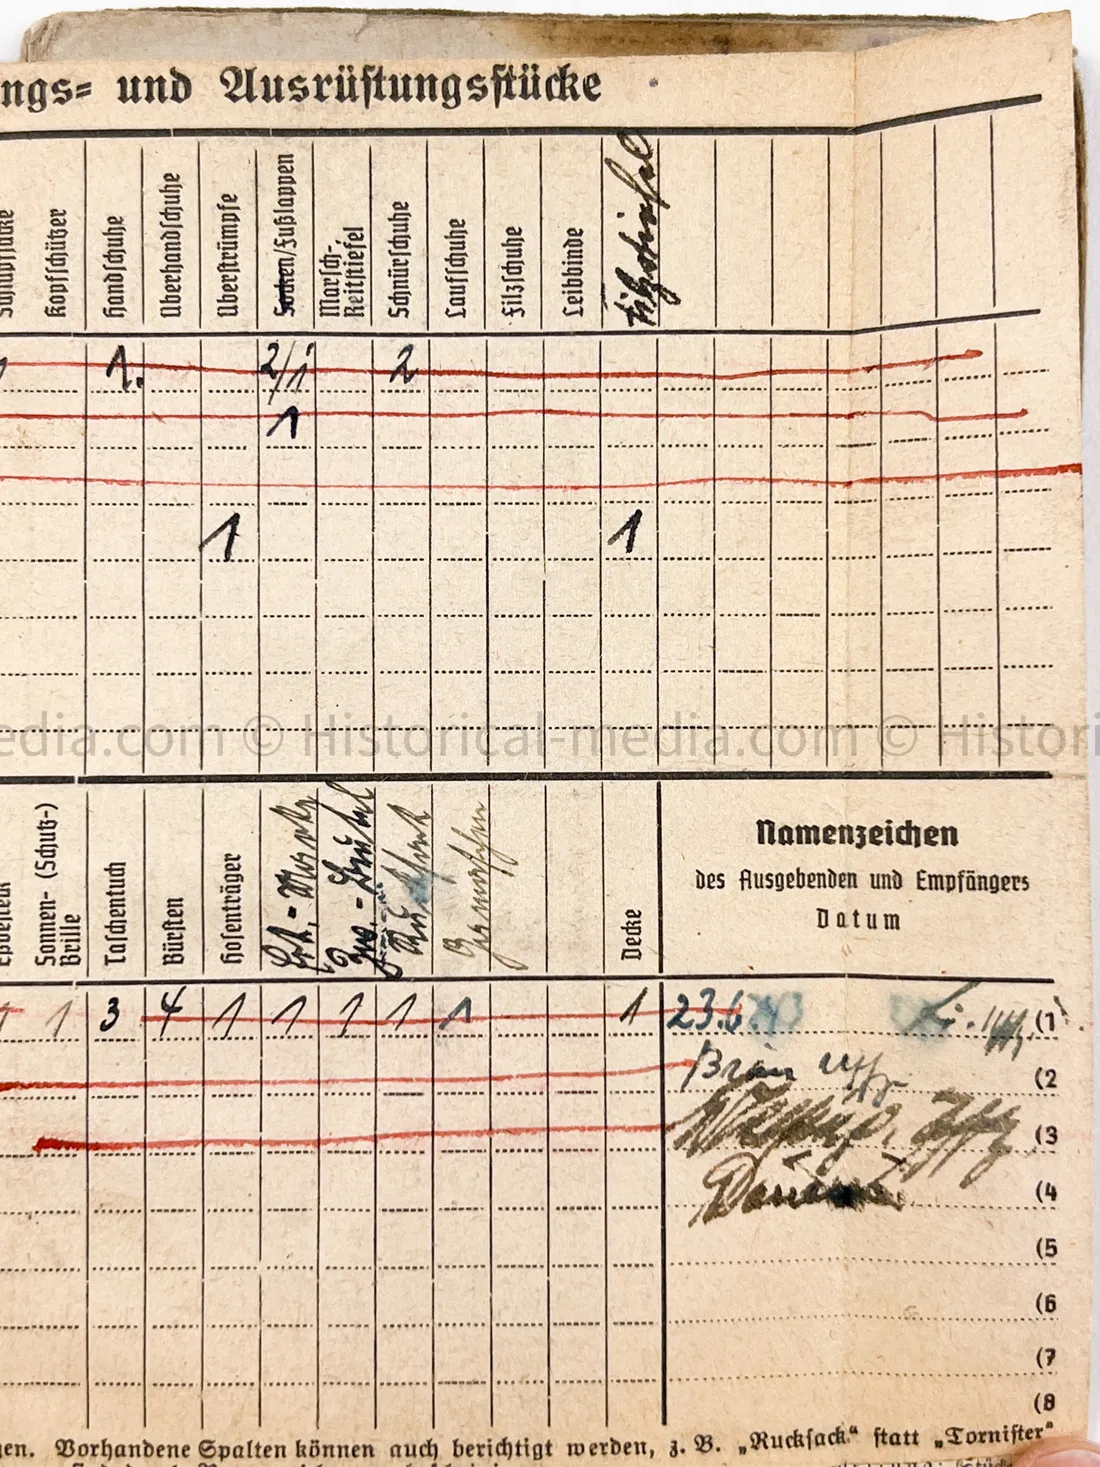 ngs= und Ausrüstungsstücke
Kopfschützer
Handschuhe
Überhandschuhe
Überstrümpfe
Socken/Fußlappen
Marsch-, Reitstiefel
Schnürschuhe
Laufschuhe
Filzschuhe
Leibbinde
Filzstiefel
1. 2/1 2
1
1 1
edia.com © Historical-media.com © Histori
Sonnen- (Schutz-) Brille
Taschentuch
Bürsten
Hosenträger
Decke
Namenzeichen
des Ausgebenden und Empfängers
Datum
1 1 3 4 1 1 1 1 1 1 23.6. (1
(2
(3
(4
(5
(6
(7
(8
gen. Vorhandene Spalten können auch berichtigt werden, z. B. „Rucksack“ statt „Tornister“